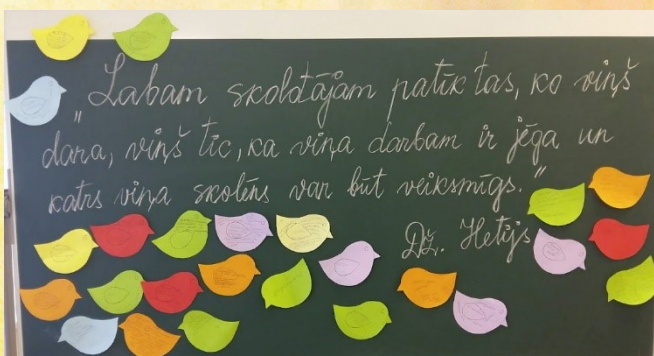 "Labam skolotājam patīk tas, ko viņš
dara, viņš tic, ka viņa darbam ir jēga un
katrs viņa skolēns var būt veiksmīgs."
Dž. Hetijs